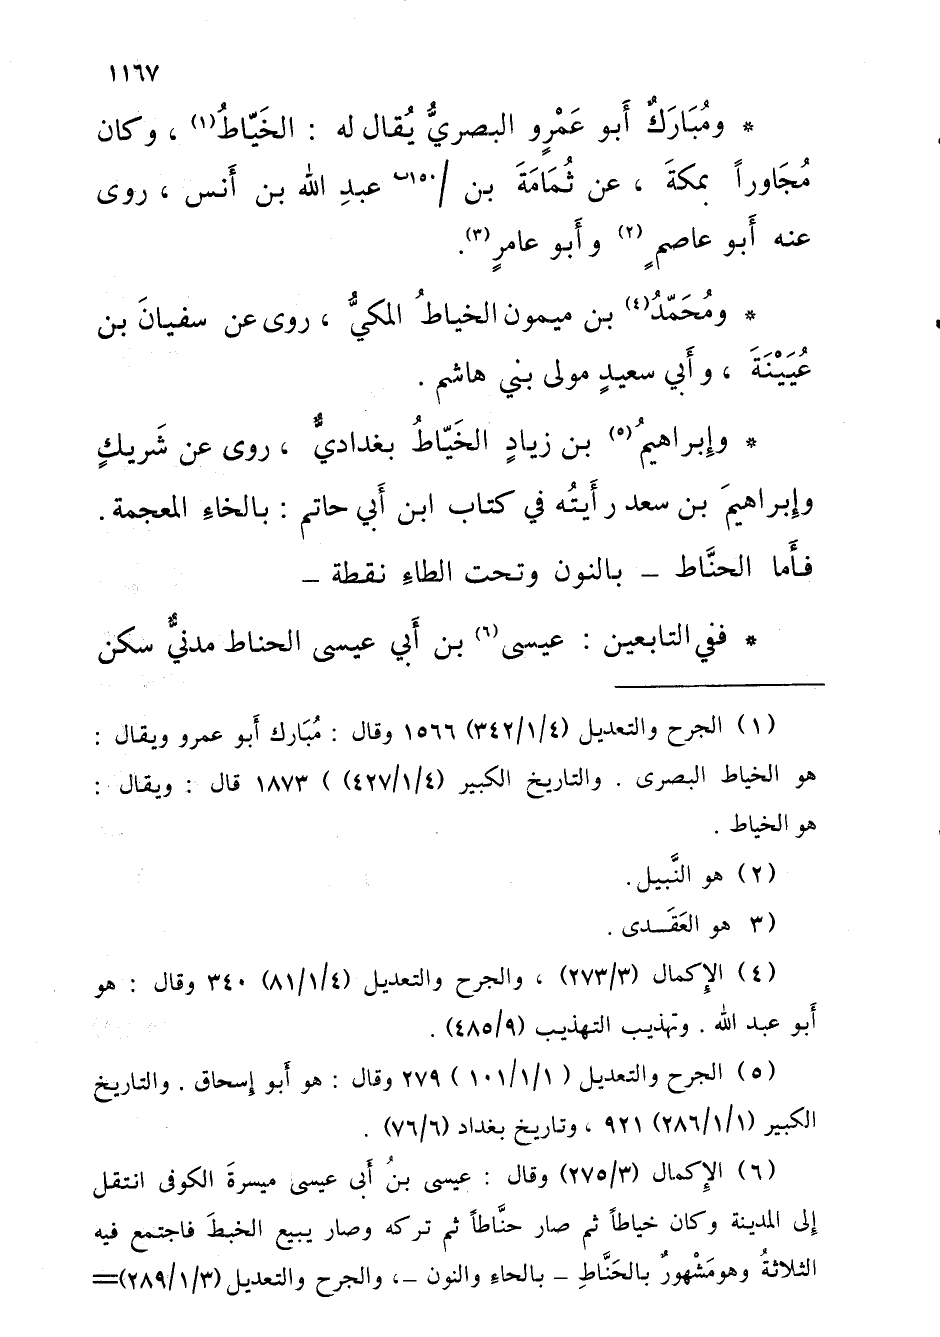 ١١٦٧
* ومُبَارَكٌ أَبو عَمْرٍو البصريُّ يُقال له : الخَيّاطُ(١) ، وكان
مُجَاوراً بمكةَ ، عن ثُمَامَةَ بن /١٥٠ب عبدِ الله بن أَنس ، روى
عنه أَبو عاصمٍ (٢) وأَبو عامرٍ(٣).
* ومُحَمّدُ(٤) بن ميمون الخياطُ المكيُّ ، روى عن سفيانَ بن
عُيَيْنَةَ ، وأَبي سعيدٍ مولى بني هاشم .
* وإِبراهيمُ(٥) بن زيادٍ الخَيّاطُ بغداديٌّ ، روى عن شَريكٍ
وإِبراهيمَ بن سعد رأَيتُه في كتاب ابن أَبي حاتم : بالخاءِ المعجمة .
فأَما الحنَّاط – بالنون وتحت الطاءِ نقطة –
* ففي التابعين : عيسى(٦) بن أَبي عيسى الحناط مدنيٌّ سكن
(١) الجرح والتعديل (٣٤٢/١/٤) ١٥٦٦ وقال : مُبَارك أَبو عمرو ويقال :
هو الخياط البصرى . والتاريخ الكبير (٤٢٧/١/٤) ) ١٨٧٣ قال : ويقال :
هو الخياط .
(٢) هو النَّبيل.
(٣ هو العَقَدى .
(٤) الإكمال (٢٧٣/٣) ، والجرح والتعديل (٨١/١/٤) ٣٤٠ وقال : هو
أَبو عبد الله . وتهذيب التهذيب (٤٨٥/٩) .
(٥) الجرح والتعديل ( ١٠١/١/١ ) ٢٧٩ وقال : هو أَبو إِسحاق . والتاريخ
الكبير (٢٨٦/١/١) ٩٢١ ، وتاريخ بغداد (٧٦/٦) .
(٦) الإِكمال (٢٧٥/٣) وقال : عيسى بنُ أَبى عيسى ميسرةَ الكوفى انتقل
إِلى المدينة وكان خياطاً ثم صار حنَّاطاً ثم تركه وصار يبيع الخبطَ فاجتمع فيه
الثلاثةُ وهو مَشْهورٌ بالحَنَّاطِ – بالحاءِ والنون –، والجرح والتعديل (٢٨٩/١/٣)=